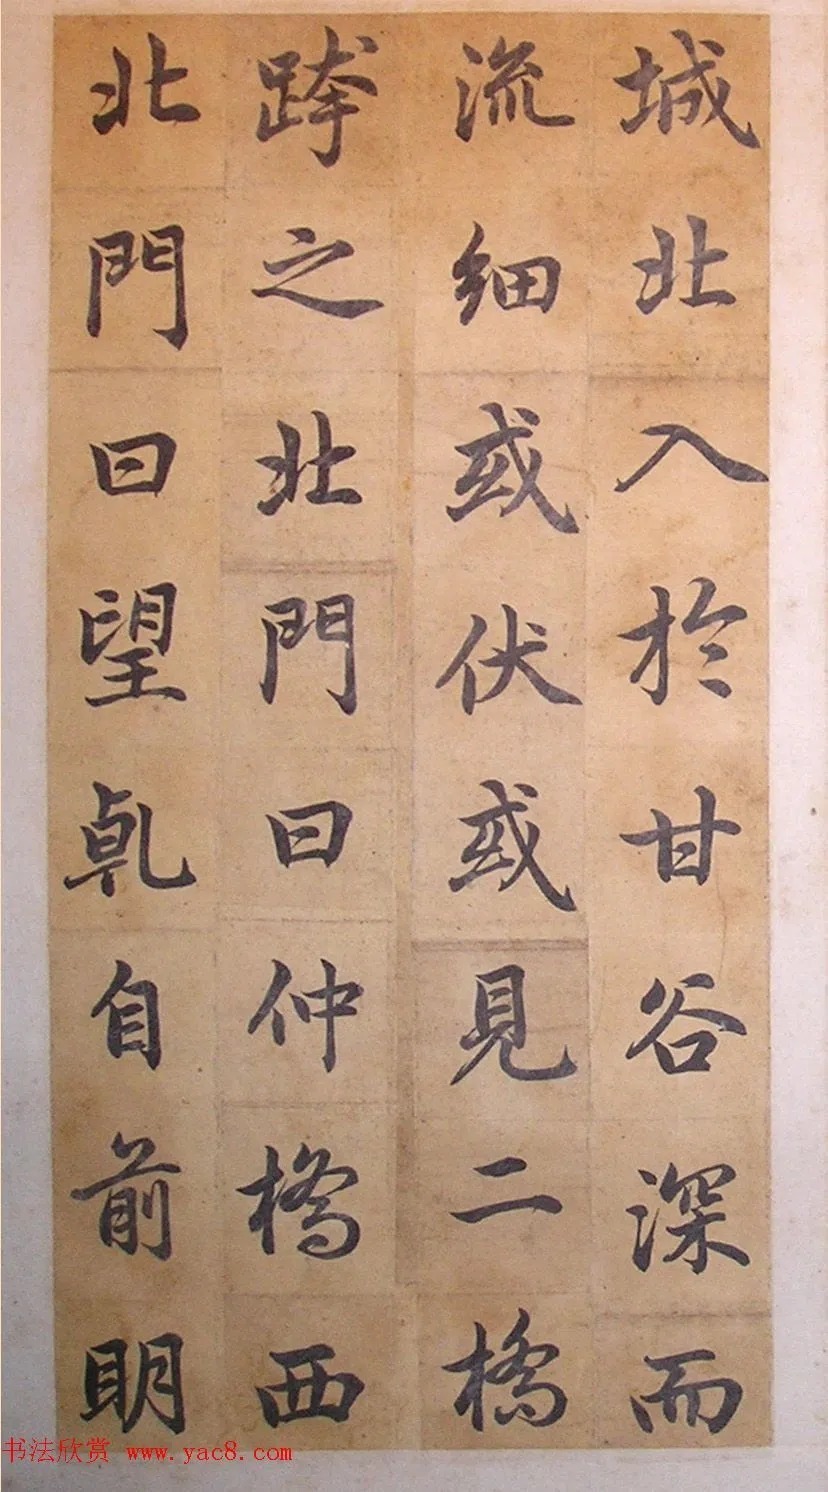 城北入於甘谷深而
流細或伏或見二橋
跨之北門曰仲橋西
北門曰望乹自前明
书法欣赏 www.yac8.com